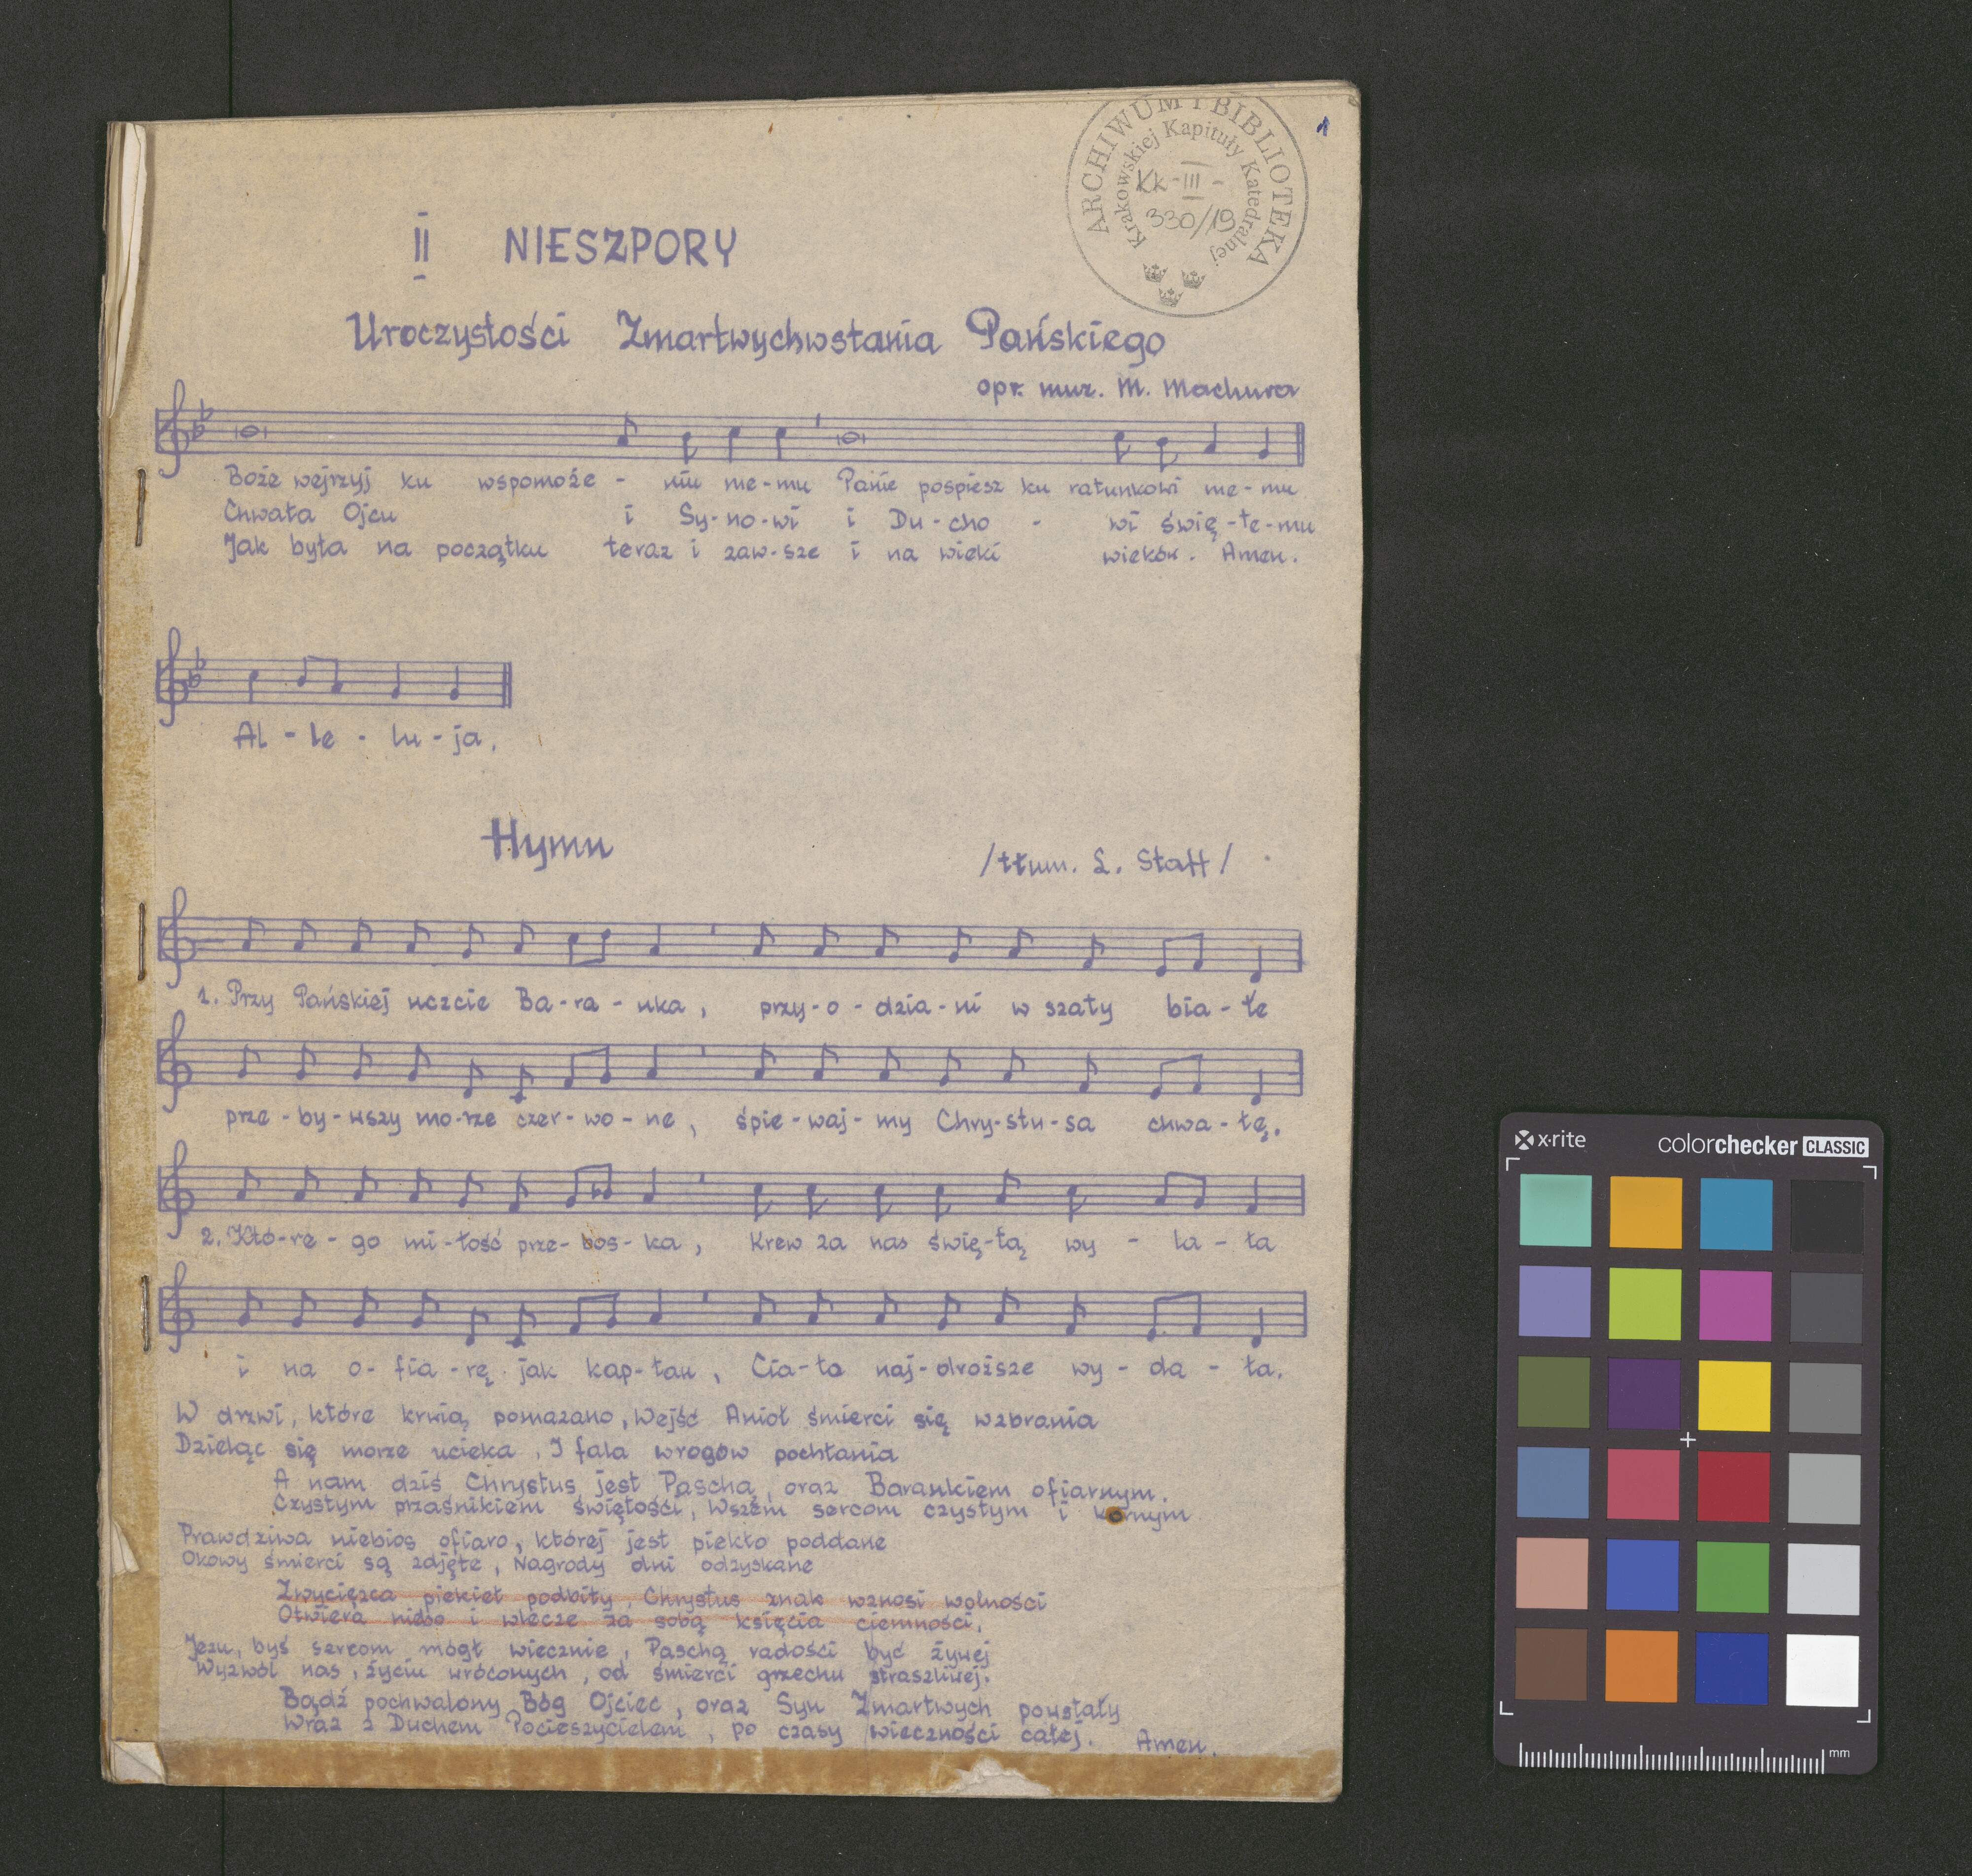 1
ARCHIWUM I BIBLIOTEKA
Krakowskiej Kapituły Katedralnej
Kk-III-
330/19
II NIESZPORY
Uroczystości Zmartwychwstania Pańskiego
opr. muz. M. Machura
Boże wejrzyj ku wspomoże - niu me-mu Panie pospiesz ku ratunkowi me-mu
Chwała Ojcu i Sy-no-wi i Du-cho - wi świę-te-mu
Jak była na początku teraz i zaw-sze i na wieki wieków. Amen.
Al-le-lu-ja.
Hymn
/tłum. L. Staff/
1. Przy Pańskiej uczcie Ba-ra-nka, przy-o-dzia-ni w szaty bia-łe
prze-by-wszy mo-rze czer-wo-ne, śpie-waj-my Chry-stu-sa chwa-łę.
2. Któ-re-go mi-łość prze-bos-ka, Krew za nas świę-tą wy - la-ła
i na o-fia-rę jak kap-łan, Cia-ło naj-droższe wy-da-ła.
W drzwi, które krwią pomazano, Wejść Anioł śmierci się wzbrania
Dzieląc się morze ucieka, I fala wrogów pochłania
A nam dziś Chrystus jest Paschą, oraz Barankiem ofiarnym.
Czystym przaśnikiem świętości, Wszem sercom czystym i kornym
Prawdziwa niebios ofiaro, której jest piekło poddane
Okowy śmierci są zdjęte, Nagrody dni odzyskane
Zwycięzca piekieł podbity, Chrystus znak wznosi wolności
Otwiera niebo i wlecze za sobą księcia ciemności.
Jezu, byś sercom mógł wiecznie, Paschą radości być żywej
Wyzwól nas, życiu wróconych, od śmierci grzechu straszliwej.
Bądź pochwalony Bóg Ojciec, oraz Syn Zmartwych powstały
Wraz z Duchem Pocieszycielem, po czasy wieczności całej. Amen.
x·rite
colorchecker CLASSIC
mm